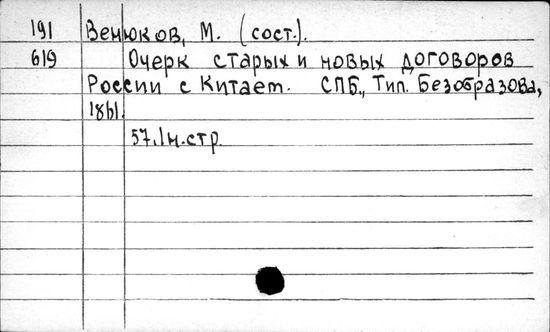 191 Венюков, М. (сост.).
619 Очерк старых и новых договоров
России с Китаем. СПБ., Тип. Безобразова,
1861.
57.1н.стр.